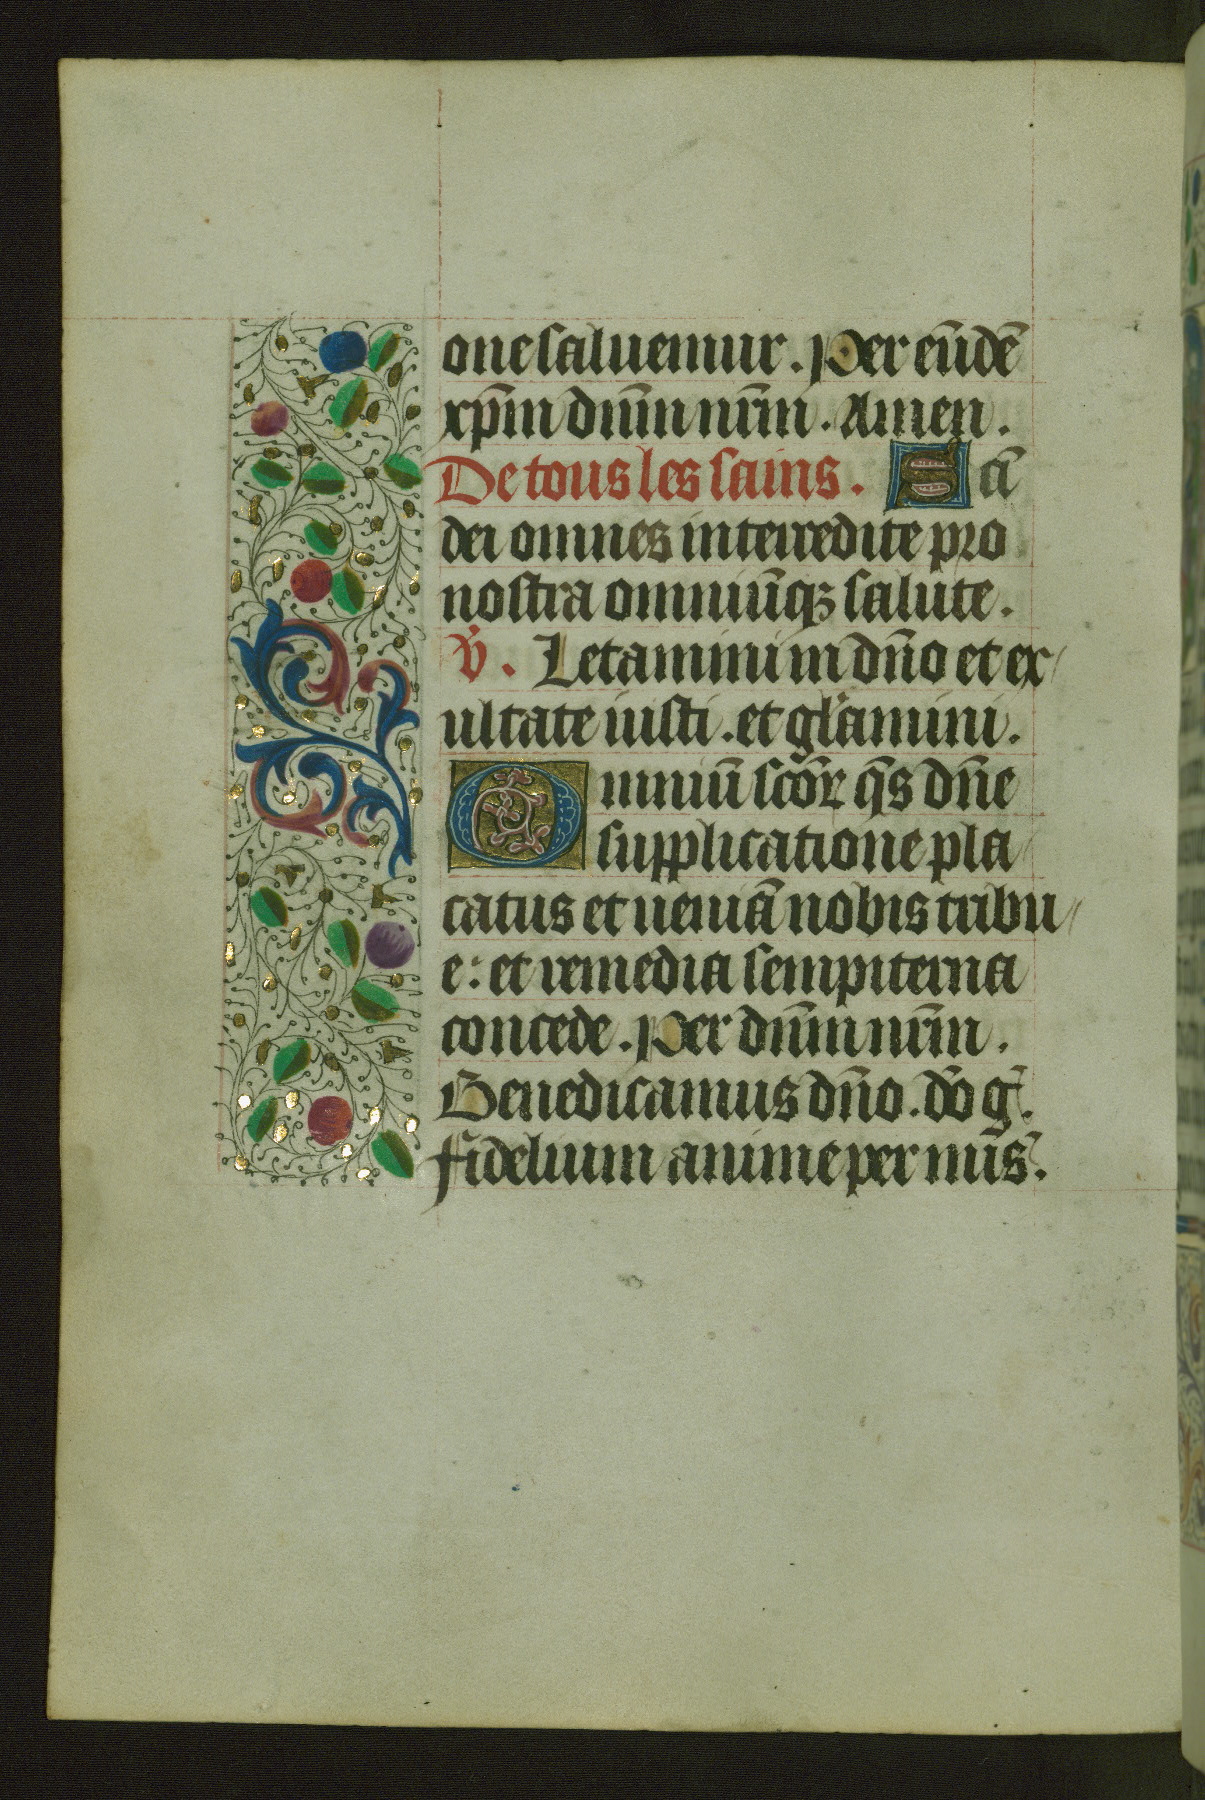 one saluemur. Per eūdē
xp̄m dn̄m nr̄m. Amen.
De tous les sains. Sā̄
dei omnes intercedite pro
nostra omniūqꝫ salute.
v̄. Letamini in dn̄o et ex
ultate iusti. et gl̄amini.
Omniū sc̄oꝝ qs̄ dn̄e
supplicatione pla
catus et ueniā nobis tribu
e: et remedia sempiterna
concede. Per dn̄m nr̄m.
Benedicamus dn̄o. dō ḡ.
Fidelium anime per mis̄.